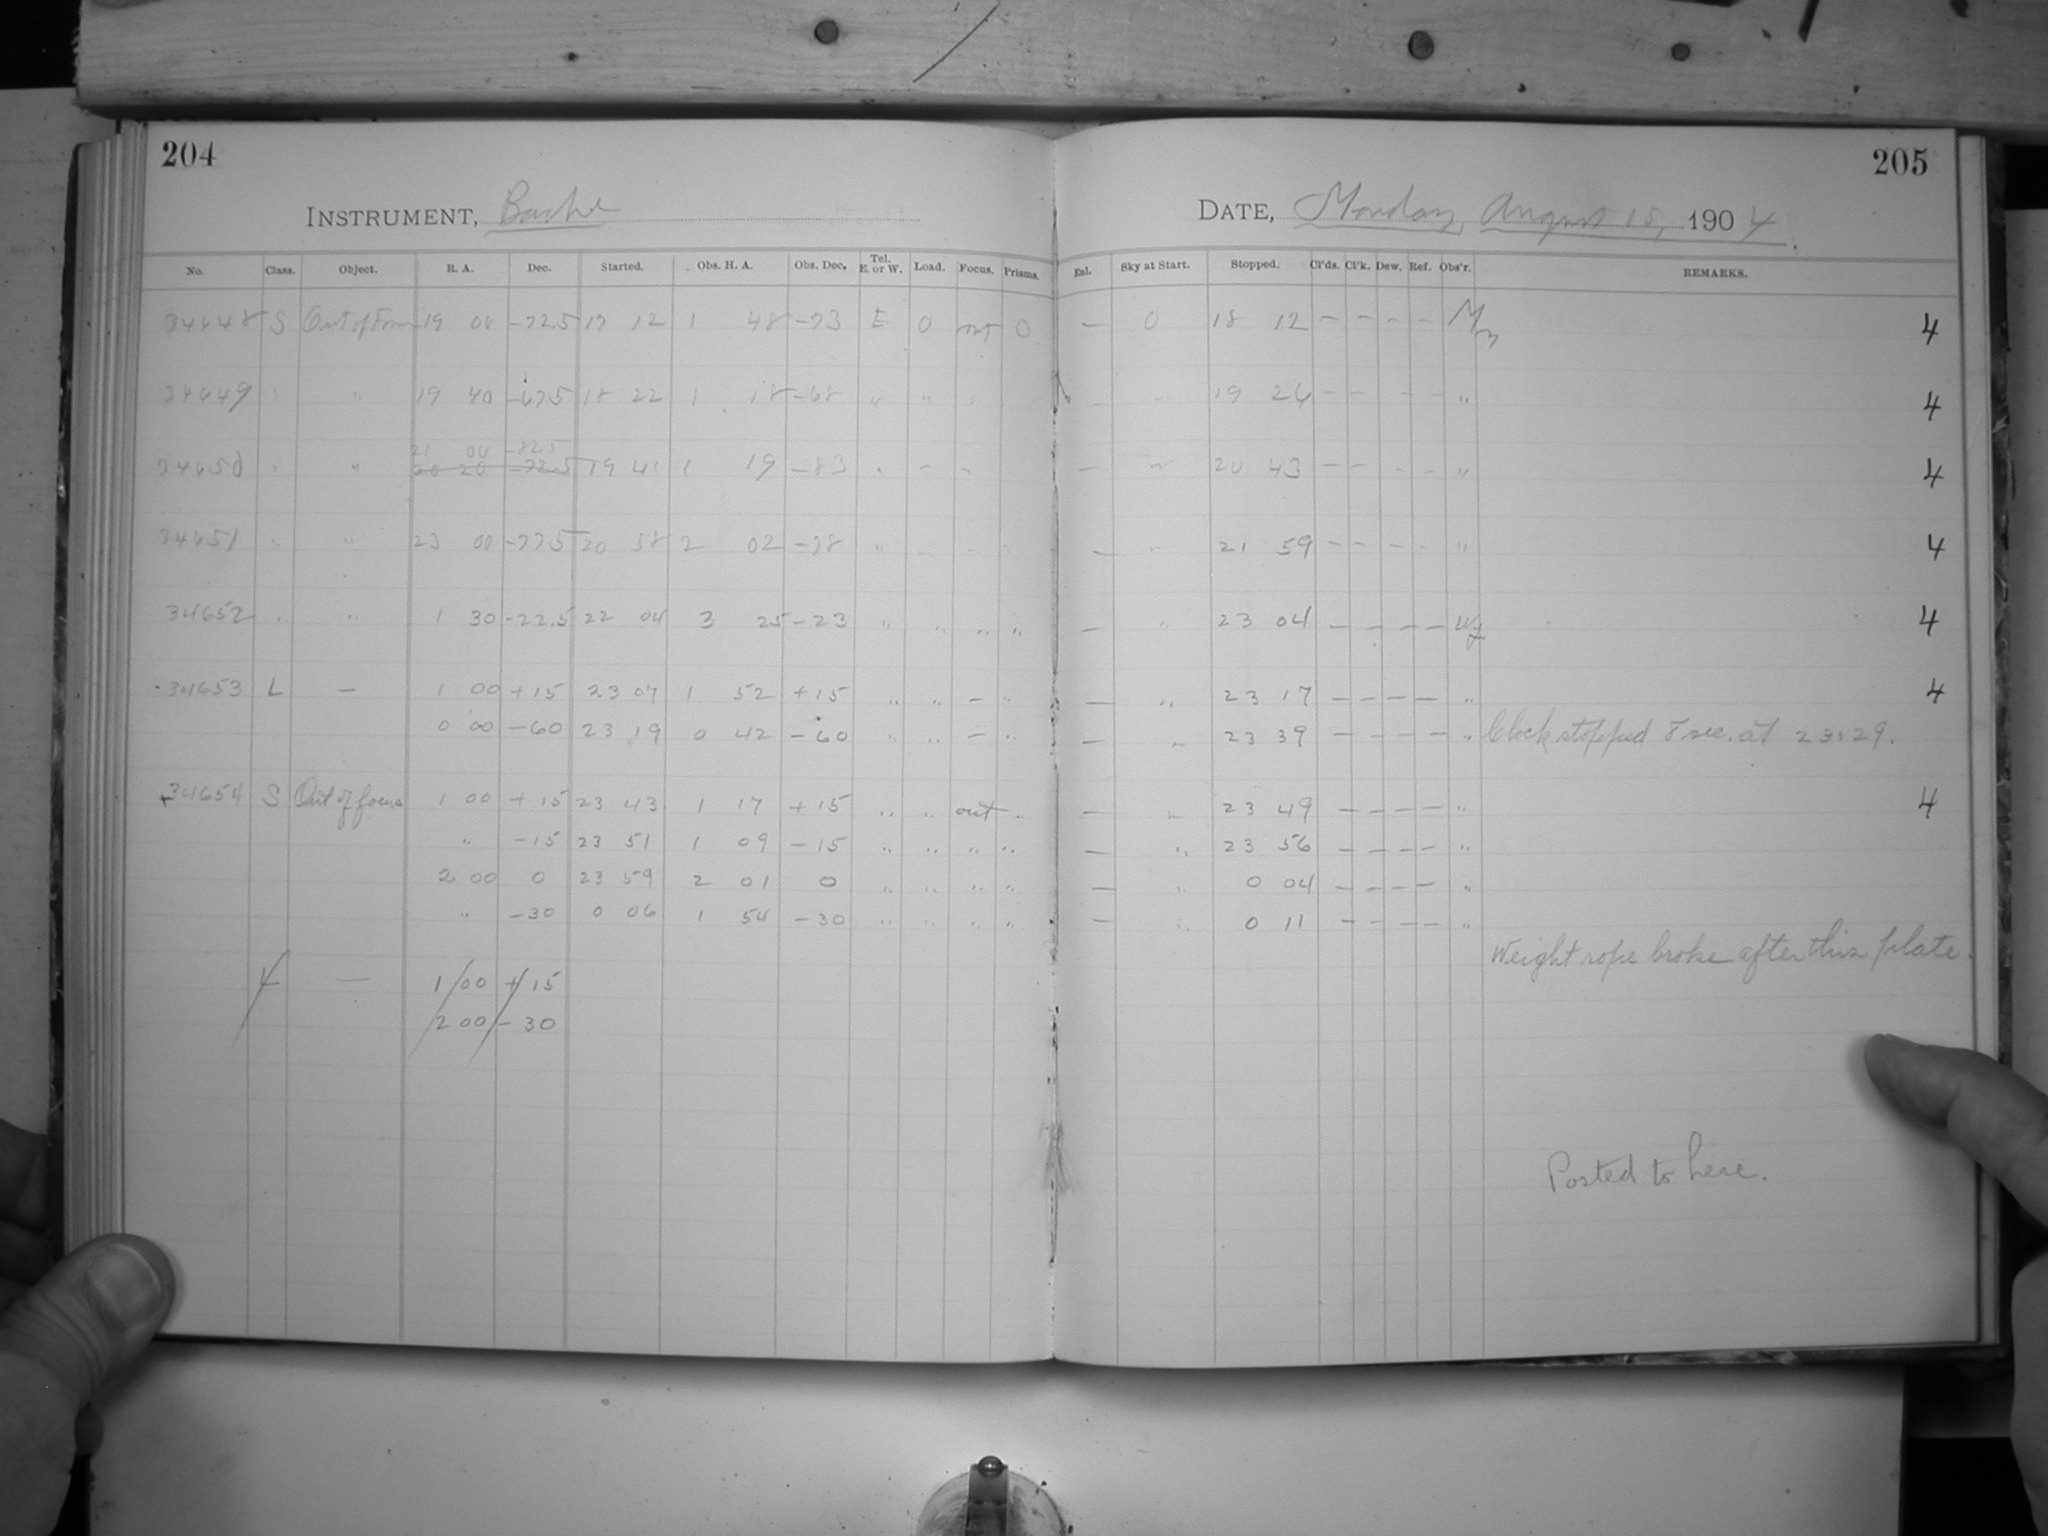 204
205
INSTRUMENT, Bache
DATE, Monday, August 15, 1904.
No. Class. Object. R. A. Dec. Started. Obs. H. A. Obs. Dec. Tel. E. or W. Load. Focus. Prisms. Enl. Sky at Start. Stopped. Cl'ds. Cl'k. Dew. Ref. Obs'r. REMARKS.
34648 S Out of Foc 19 00 -72.5 17 12 1 48 -73 E 0 out 0 — 0 18 12 — — — — 4
34649 " " 19 40 -67.5 18 22 1 18 -68 " " — " 19 24 — — — — " 4
21 00 -82.5
34650 " " 20 20 -72.5 19 41 1 19 -83 " — " 20 43 — — — — " 4
34651 " " 23 00 -77.5 20 58 2 02 -78 " — " 21 59 — — — — " 4
34652 " " 1 30 -22.5 22 04 3 25 -23 " " " " — " 23 04 — — — — Wy 4
34653 L — 1 00 +15 23 07 1 52 +15 " " — " — " 23 17 — — — — " 4
0 00 -60 23 19 0 42 -60 " " — " — " 23 39 — — — — " Clock stopped 8 sec. at 23:29.
34654 S Out of focus 1 00 +15 23 43 1 17 +15 " " out " — " 23 49 — — — — " 4
" -15 23 51 1 09 -15 " " " " — " 23 56 — — — — "
2 00 0 23 59 2 01 0 " " " " — " 0 04 — — — — "
" -30 0 06 1 54 -30 " " " " — " 0 11 — — — — "
Weight rope broke after this plate.
L — 1 00 +15
2 00 -30
Posted to here.